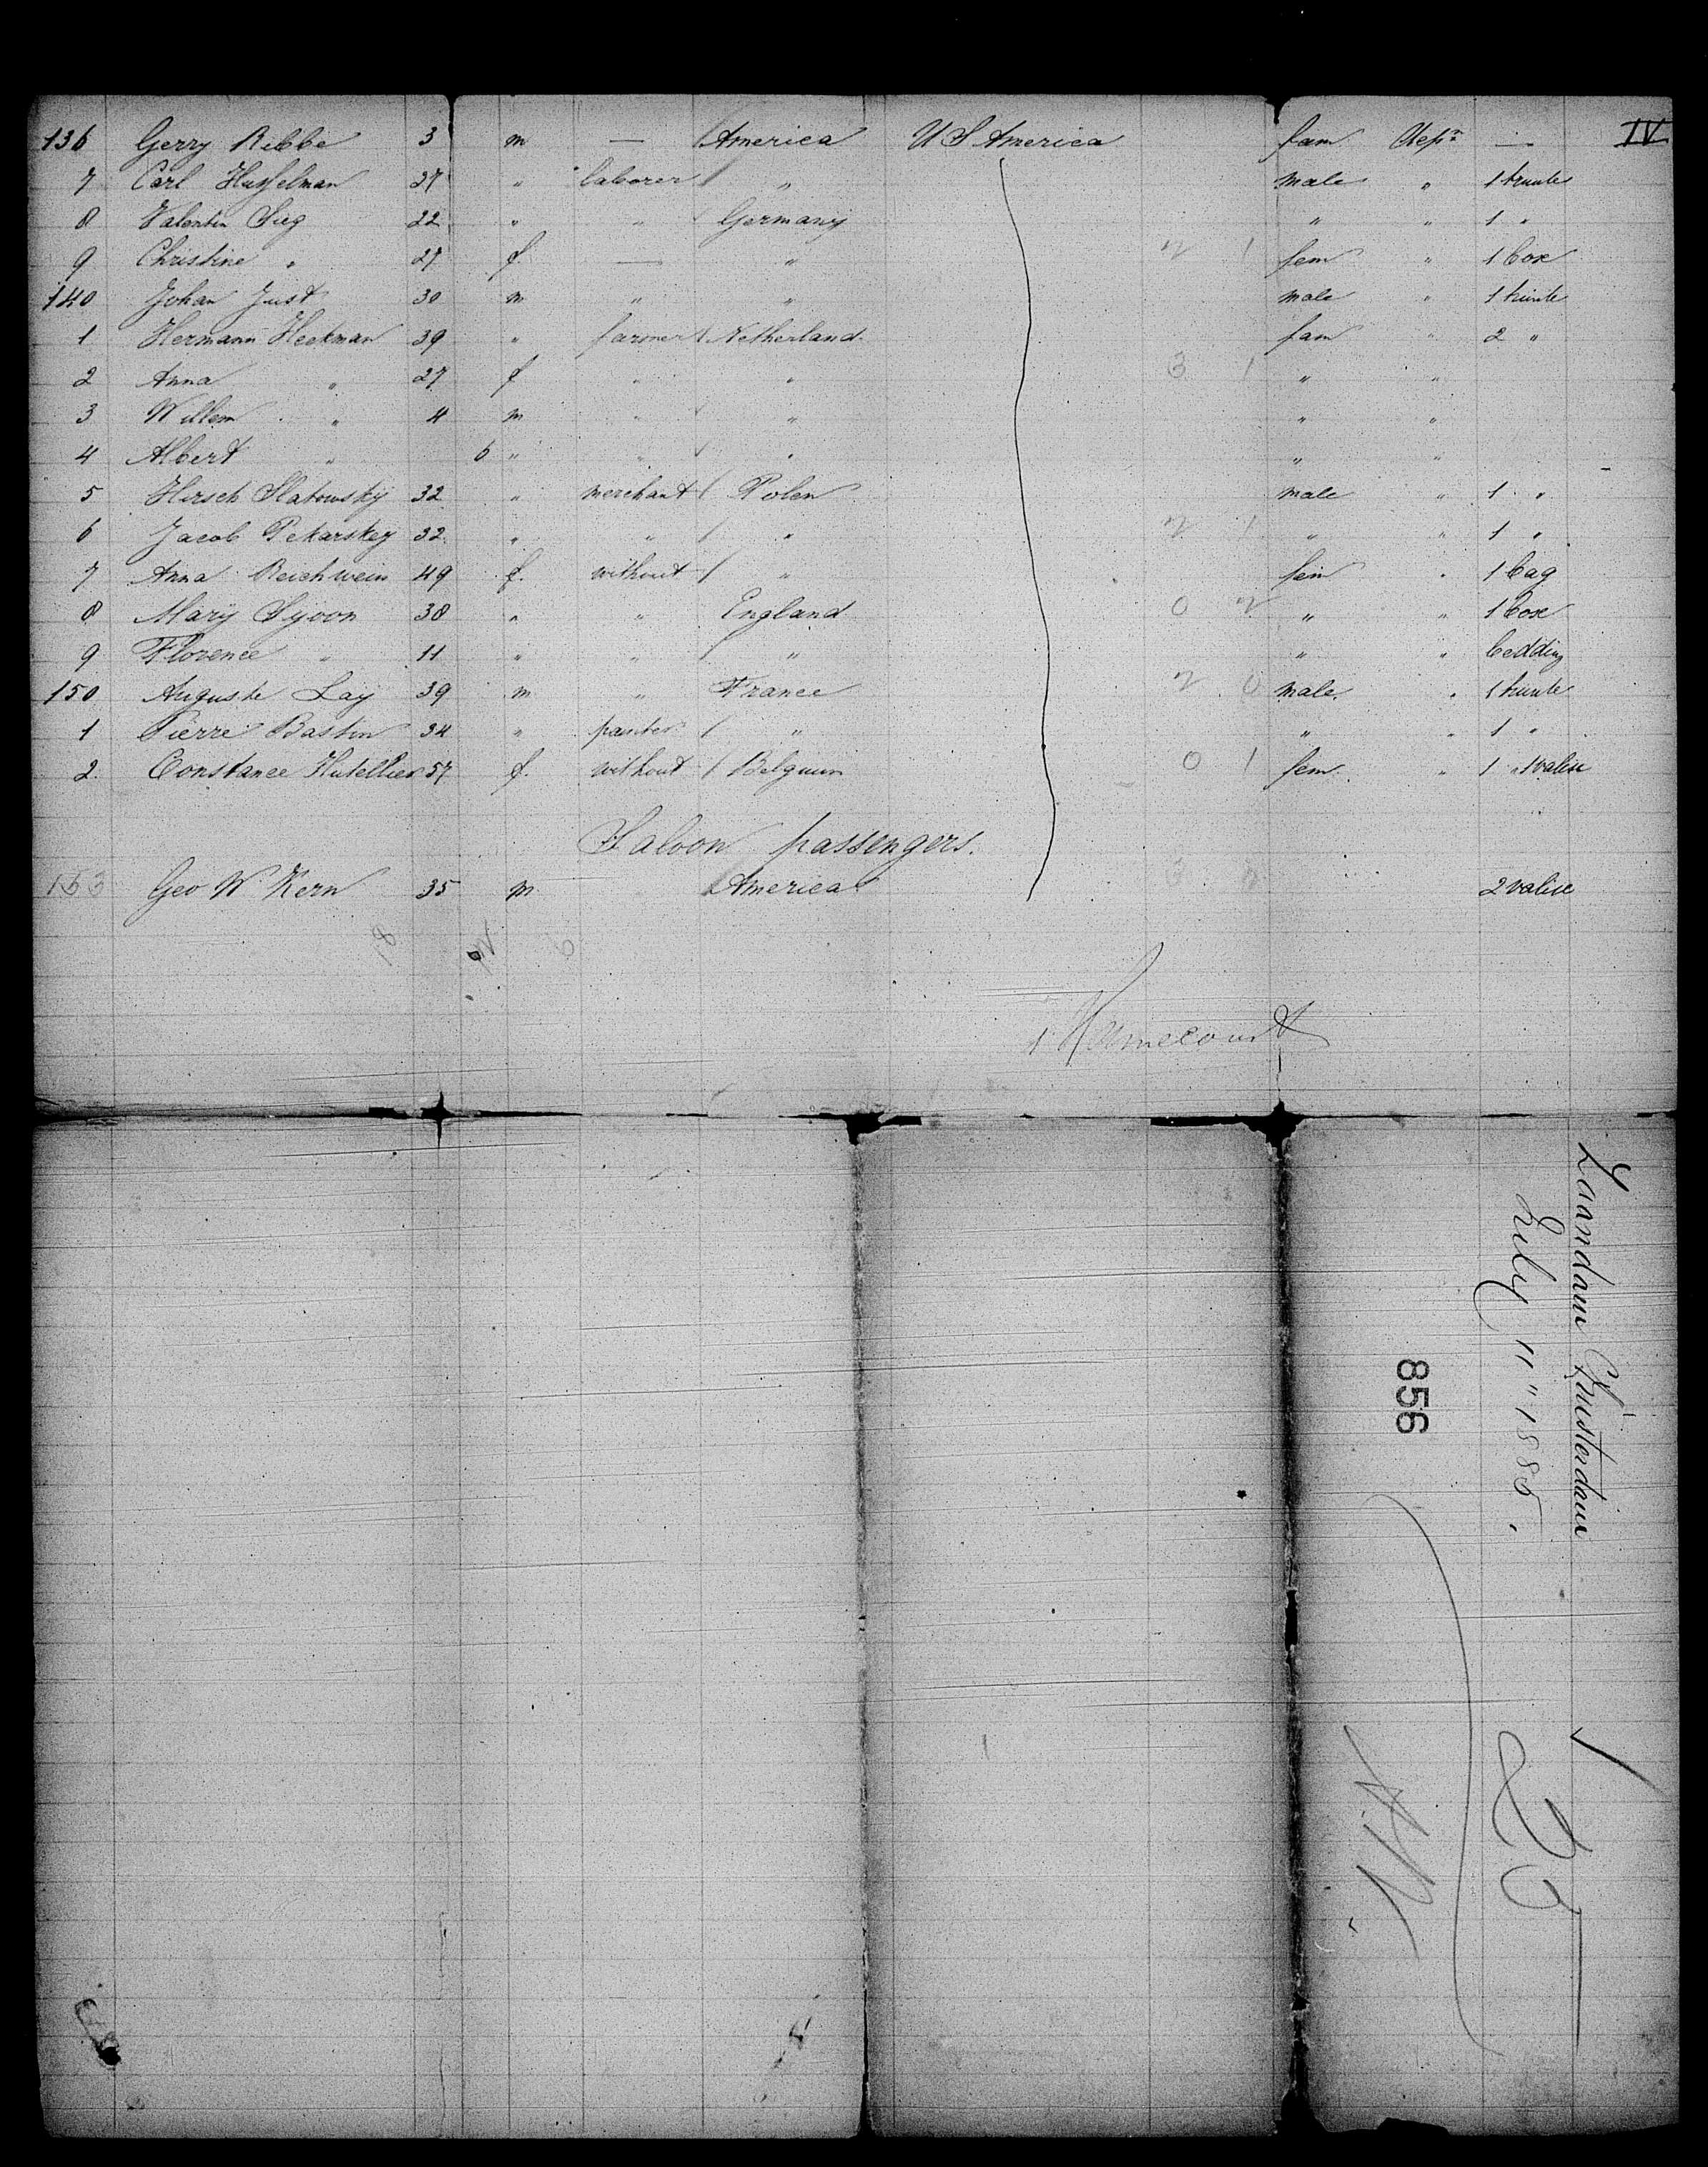 136 Gerry Ribbe 3 m — America U S America fam Utepr — IV
7 Carl Husselman 27 " laborer " male " 1 trunk
8 Valentin Sieg 22 " " Germany " " 1 "
9 Christine " 27 f. — " 2 1 fem " 1 box
140 Johan Just 30 m " " male " 1 trunk
1 Hermann Heekman 39 " farmer Netherland. fam " 2 "
2 Anna " 27 f " " 3 1 " "
3 Willem " 4 m " " " "
4 Albert " 6 " " " " "
5 Hirsch Slatowsky 32 " merchant Polen male " 1 "
6 Jacob Pekarskey 32 " " " 2 1 " " 1 "
7 Anna Reichwein 49 f. without " fem " 1 bag
8 Mary Syoon 38 " " England 0 2 " " 1 box
9 Florence " 11 " " " " " bedding
150 Auguste Lay 39 m " France 2 0 male " 1 trunk
1 Pierre Bastin 34 " painter " " " 1 "
2. Constance Hutellier 57 f. without Belgium 0 1 fem " 1 " 1 valise
Saloon passengers.
153 Geo W Kern 35 m America 3 0 2 valise
Zaandam Amsterdam
July 11" 1885.
856